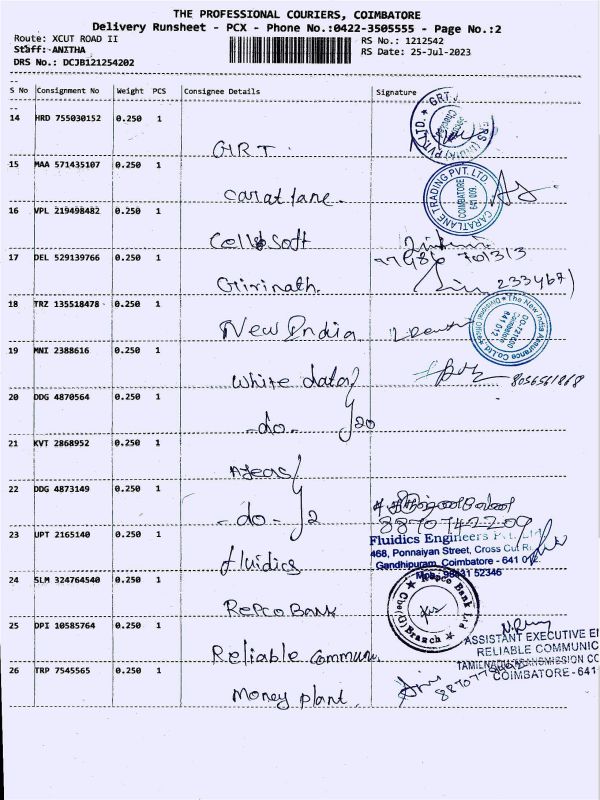 THE PROFESSIONAL COURIERS, COIMBATORE
Delivery Runsheet - PCX - Phone No.:0422-3505555 - Page No.:2
Route: XCUT ROAD II RS No.: 1212542
Staff: ANITHA RS Date: 25-Jul-2023
DRS No.: DCJB121254202
S No Consignment No Weight PCS Consignee Details Signature
14 HRD 755030152 0.250 1 GRT
15 MAA 571435107 0.250 1 Carat lane.
CARATLANE TRADING PVT. LTD.
COIMBATORE
641 009.
16 VPL 219498482 0.250 1 Cell soft
17 DEL 529139766 0.250 1 Girinath.
18 TRZ 135518478 0.250 1 New India
The New India Assurance Co.Ltd.
19 MNI 2388616 0.250 1 White data
8056561868
20 DDG 4870564 0.250 1 -do- 20
21 KVT 2868952 0.250 1
22 DDG 4873149 0.250 1 -do- 2
8870742209
23 UPT 2165140 0.250 1 fluidics
Fluidics Engineers
468, Ponnaiyan Street, Cross Cut
Gandhipuram, Coimbatore - 641
24 SLM 324764540 0.250 1 Repco Bank
Repco Bank
Branch
25 DPI 10585764 0.250 1 Reliable Commun.
ASSISTANT EXECUTIVE
RELIABLE COMMUNIC
TAMILNADU TRANSMISSION CO
COIMBATORE - 641
26 TRP 7545565 0.250 1 Money plant.